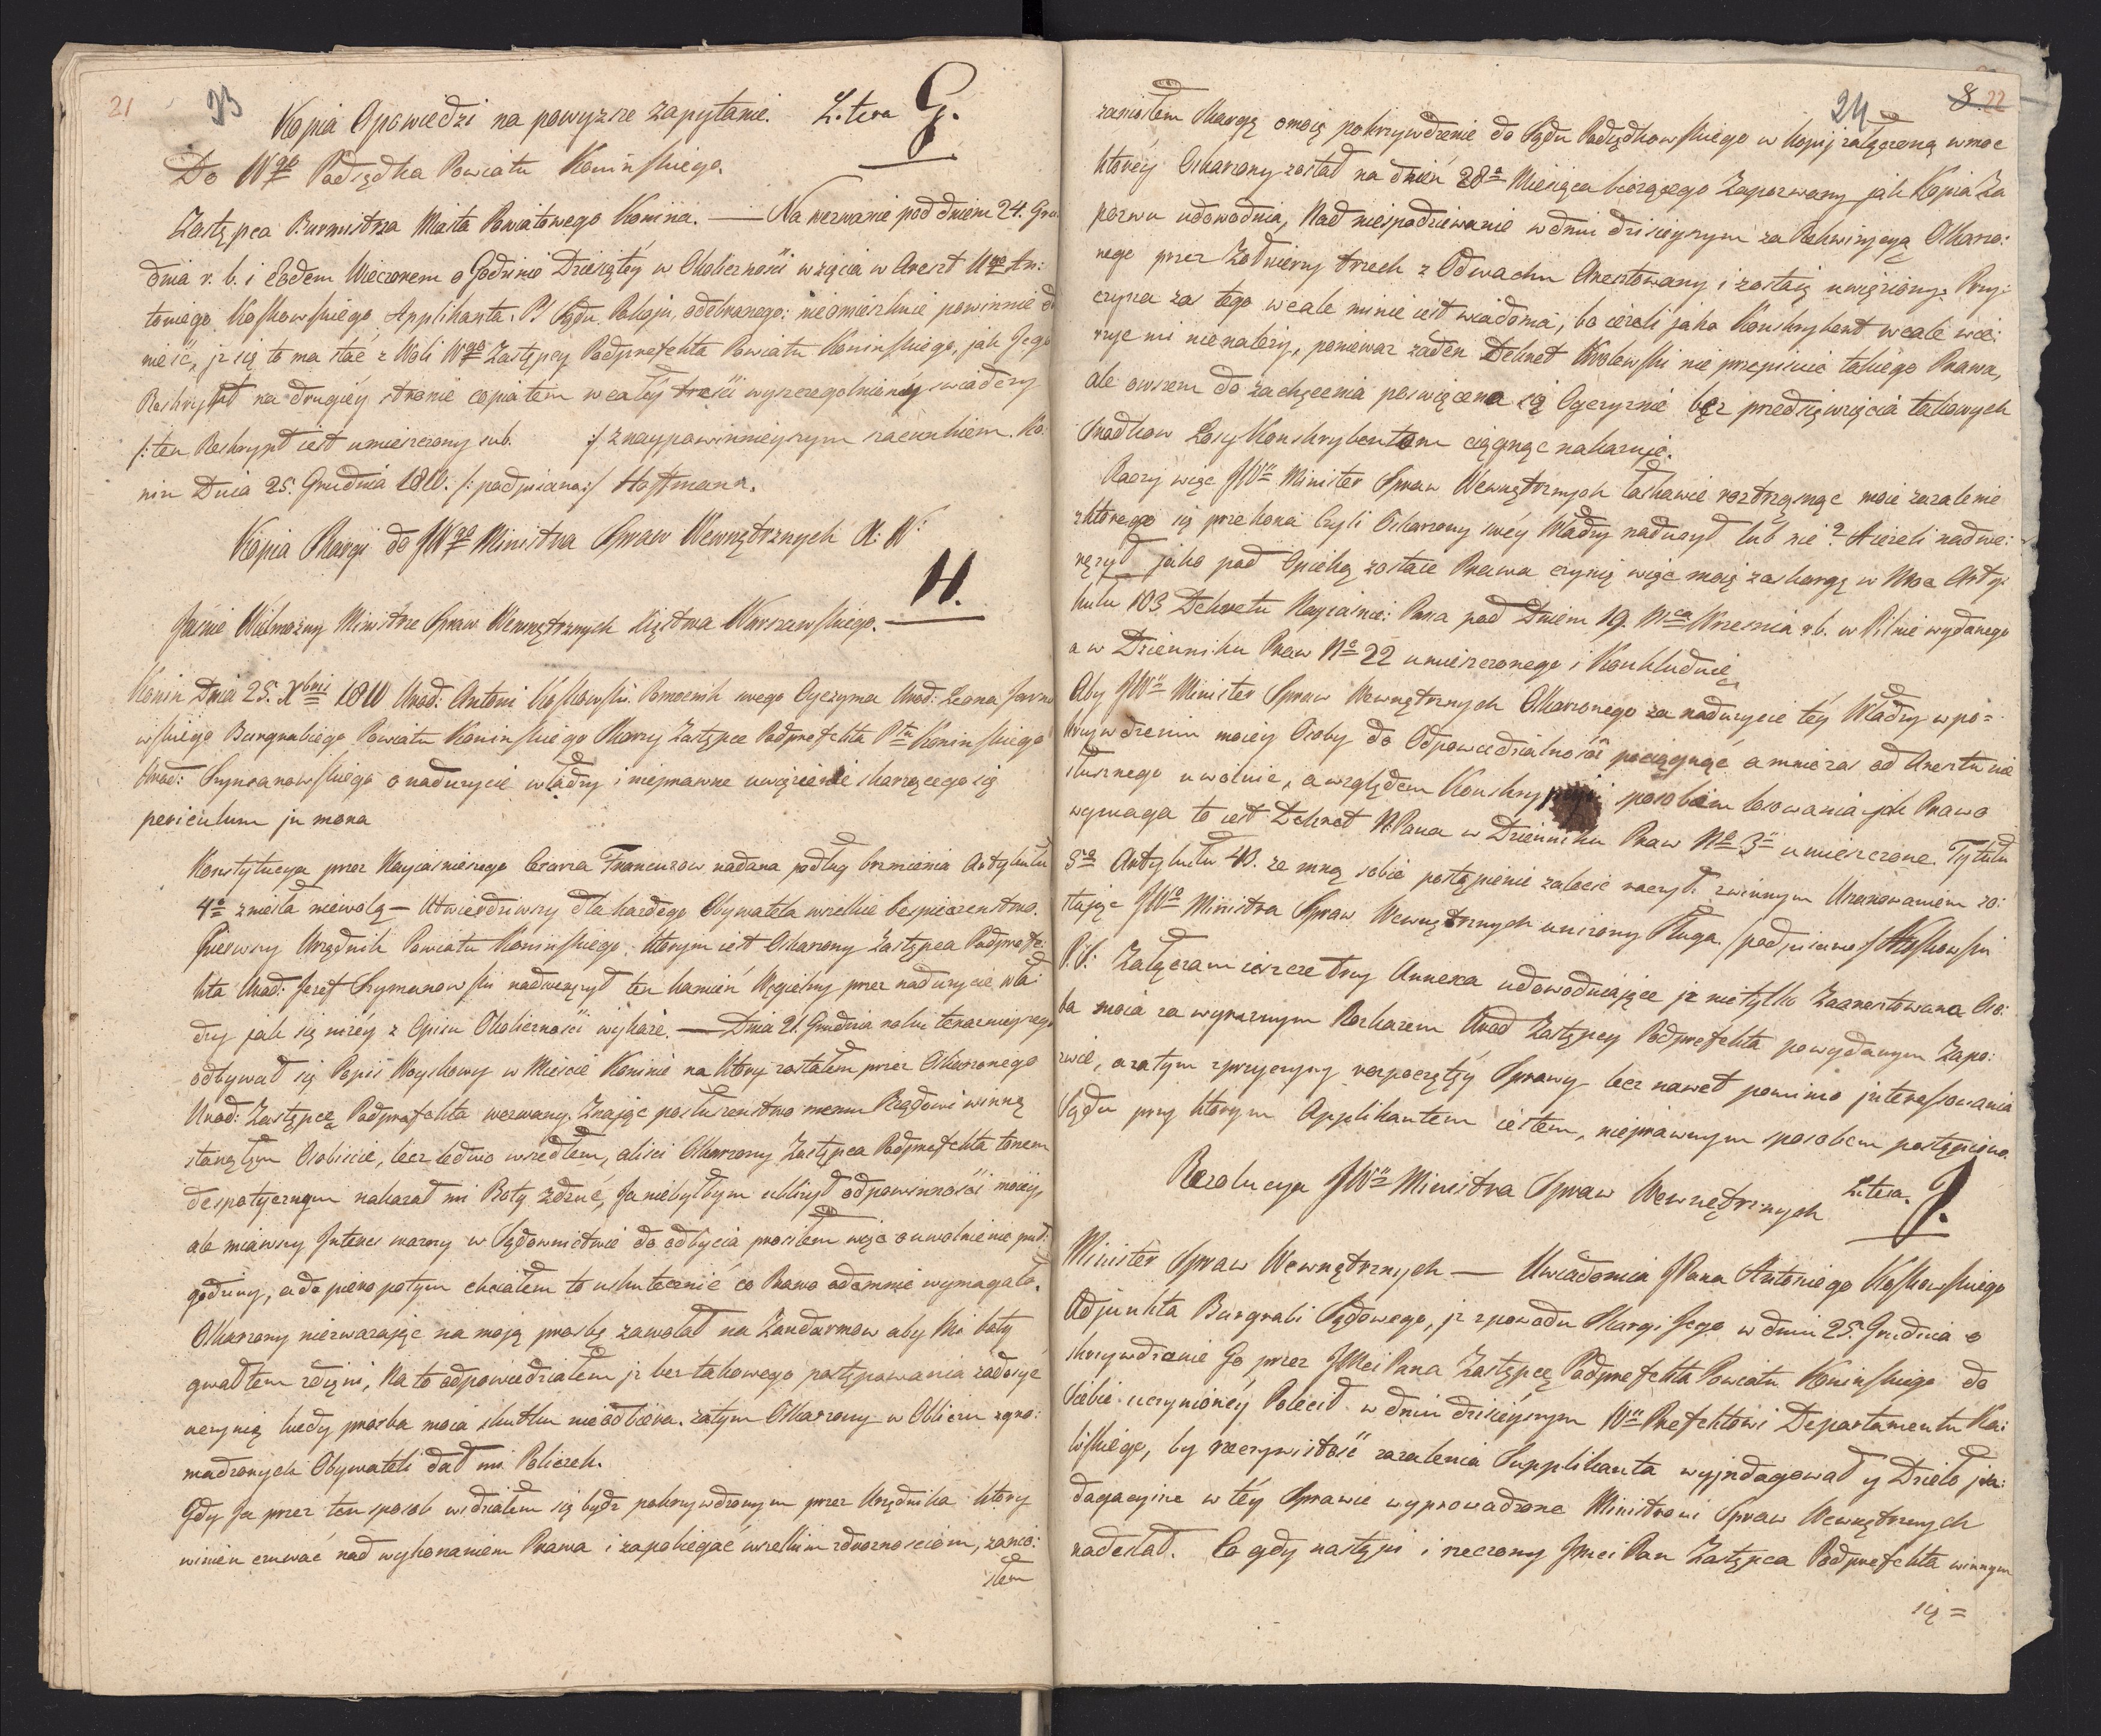 21 23
Kopia Opowiedzi na powyzsze zapytanie. Litera G.
Do Wgo Podsędka Powiatu Konińskiego.
Zastępca Burmistrza Miasta Powiatowego Konina. — Na wezwanie pod dniem 24. Gru
dnia r. b. i Eodem Wieczorem o Godzinie Dziesiątey w Okoliczności wzięcia w Areszt Ugo An:
toniego Koskowskiego Applikanta P. Sądu Pokoju, odebranego: nieomieszkuie powinnie do
nieść, iz się to ma stać z Woli Wgo Zastępcy Podprefekta Powiatu Konińskiego, jak Jego
Reskrypt na drugiéy stronie copiatem w całéy treści wyszczegolnionéy swiadczy
/: ten Reskrypt iest umieszczony sub. :/ z naypowinnieyszym szacunkiem. Ko:
nin Dnia 25. Grudnia 1810. /: podpisano :/ Hoffmann.
Kopia Skargi do JWgo Ministra Spraw Wewnętrznych X: W:
H.
Jaśnie Wielmożny Ministrze Spraw Wewnętrznych Xięstwa Warszawskiego.
Konin Dnia 25. Xbris 1810 Urod: Antoni Koskowski Pomocnik swego Oyczyma Urod: Leona Jarno
wskiego Burgrabiego Powiatu Konińskiego Skarzy Zastępce Podprefekta Ptu Konińskiego
Urod: Szymanowskiego o naduzycie władzy i nieprawne uwięzienie skarzącego się
periculum in mora
Konstytucya przez Nayiasnieyszego Cesarza Francuzow nadana podług brzmienia Artykułu
4o zniosła niewolą — Utwierdziwszy dla kazdego Obywatela wszelkie bespieczenstwo.
Pierwszy Urzędnik Powiatu Konińskiego, ktorym iest Oskarzony Zastępca Podprefe:
kta Urod: Jozef Szymanowski nadweręzył ten kamień Węgielny przez naduzycie wła
dzy jak się nizéy z Opisu Okoliczności wykaze. — Dnia 21. Grudnia roku terazneyszego
odbywał się Popis Woyskowy w Mieście Koninie na który zostałem przez Oskarzonego
Urod: Zastępcę Podprefekta wezwany. Znaiąc posłuszenstwo memu Rządowi winną
stanąłem Osobiscie, lecz ledwo wszedłem, alisci Oskarzony Zastępca Podprefekta tonem
despotycznym nakazał mi Boty zdzuć, Ja niebyłbym ubliżył odpowinności moiéy,
ale miawszy Interes wazny w Sądownictwie do odbycia prosiłem więc o uwolnienie puł:
godziny, a do piero potym chciałem to uskutecznić co Prawo odemnie wymagało.
Oskarzony niezwazając na moją prosbę zawołał na Zandarmow aby Mi boty
gwałtem zdięni, Na to odpowiedziałem iz bez takowego postępowania zadosyć
uczynię kiedy prosba moia skutku nieodbiera. zatym Oskarzony w Obliczu zgro:
madzonych Obywateli dał mi Policzek.
Gdy Ja przez ten sposob widziałem się bydz pokrzywdzonym przez Urzędnika ktory
winien czuwać nad wykonaniem Prawa i zapobiegać wszelkim zdroznościom, zanio:
słem
24 8 22
zaniosłem Skargę o moię pokrzywdzenie do Sądu Podsędkowskiego w kopij załączoną w moc
ktoréy Oskarzony został na dzień 28o Miesiąca bieżącego Zapozwany jak Kopia Za
pozwu udowodnia, Nad niespodziewanie w dniu dzisieyszym za Rekwizycyą Oskarzo:
nego przez Żołnierzy trzech z Odwachu Aresztowany i zostaię uwięziony. Przy:
czyna zas tego wcale mi nie iest wiadoma, bo iezeli jako Konskrybent wcale wiei:
rzye mi nienalezy, poniewaz zaden Dekret Krolewski nie przepisuie takiego Prawa,
ale owszem do zachęcenia poswięcena się Oyczyznie bez przedsięwzięcia takowych
Srodkow Losy Konskrybentom ciągnąc nakazuje.
Raczy więc JWny Minister Spraw Wewnętrznych łaskawie roztrząsnąc moie zazalenie
z ktorego się przekona Czyli Oskarzony swéy Władzy naduzył lub nie? A iezeli nadwe:
ręzył jako pod Opieką zostaie Prawa czynię więc moię zaskargę w Moc Arty:
kułu 103 Dekretu Nayiasniei: Pana pod Dniem 19. Msca Wrzesnia r b. w Pilnie wydanego
a w Dzienniku Praw No 22 umieszczonego i Konkluduię
Aby JWny Minister Spraw Wewnętrznych Oskarzonego za naduzycie téy Władzy w po=
krzywdzeniu moiey Osoby do Odpowiedzialności pociągnąć a mnie zas od Aresztu nie
słusznego uwolnie, a względem Konskrypcyi sposobem losowania jak Prawo
wymaga to iest Dekret N. Pana w Dzienniku Praw No 3ci umieszczone Tytułu
5o Artykułu 40. ze mną sobie postąpienie zalecić raczył. z winnym Uszanowaniem zo:
staiąc JWgo Ministra Spraw Wewnętrznych unizony Sługa. /podpisano/ AKoskowski
P. S: Załączam ieszcze trzy Annexa udowodniające iz nietylko Zaaresztowana Oso:
ba moia za wyraznym Rozkazem Urod Zastępcy Podprefekta po wydanym Zapo:
zwie, a zatym z przyczyny rozpoczętéy Sprawy lecz nawet pomimo interessowania
Sądu przy ktorym Applikantem iestem, nieprawnym sposobem postąpiono.
Rezolucya JWgo Ministra Spraw Wewnętrznych Litera. J.
Minister Spraw Wewnętrznych — Uwiadomia JPana Antoniego Koskowskiego
Adjunkta Burgrabi Sądowego, iz zpowodu Skargi Jego w dniu 25. Grudnia o
skrzywdzenie Go przez JMci Pana Zastępcę Podprefekta Powiatu Konińskiego do
siebie uczynionéy Polecił w dniu dzisieyszym Wmu Prefektowi Departamentu Ka:
liskiego, by rzeczywistość zazalenia Supplikanta wyindagował y Dzieło jnda:
dagacyine w téy Sprawie wyprowadzone Ministrowi Spraw Wewnętrznych
nadesłał. Co gdy nastąpi i rzeczony JMci Pan Zastępca Podprefekta winnym
się =